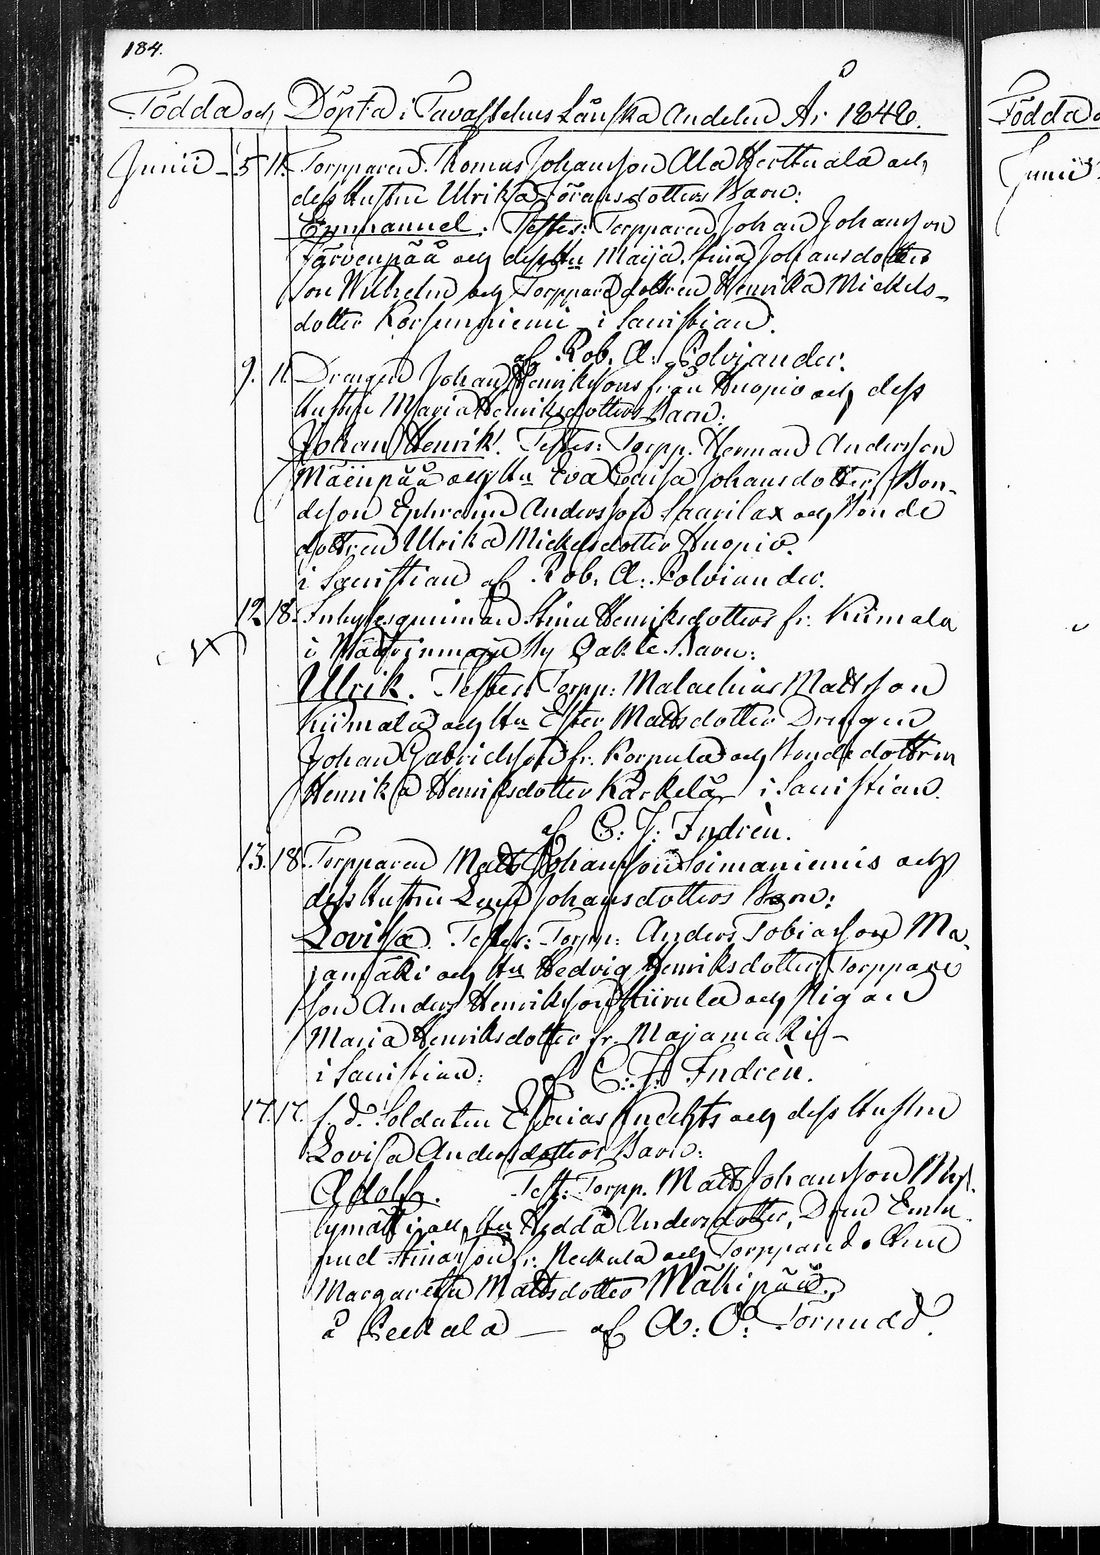 184.
Födda och Döpta i Tavastehus Länska Andelen År 1846.
Födda o
Junii 5 11. Torpparen Thomas Johansson Ala Herttuala och
Junii
dess Hustru Ulrika Göransdotters Barn:
Emmanuel. Testes: Torpparen Johan Johansson
Järvenpää och dess Hu Maija Stina Johansdotter
Son Wilhelm och Torppare dottren Henrika Mickels-
dotter Korsunniemi i Sanistian
af Rob. A. Polviander.
9. 11 Drengen Johan Henrikssons från Kuopio och dess
Hustru Maria Henriksdotters Barn:
Johan Henrik. Testes: Torpp. Herman Andersson
Mäenpää och Hu Eva Lovisa Johansdotter, Bon-
deson Ephraim Andersson Saarilax och Bonde
dottren Ulrika Mickelsdotter Kuopio.
i Sanistian af Rob. A. Polviander.
12 18. Inhysesqvinnan Stina Henriksdotters fr. Kiimala
i by Oäkta Barn:
Ulrik. Testes: Torpp: Malachias Mattsson
Kiimala och Hu Ester Mattsdotter Drengen
Johan Gabrielsson fr. Korpula och Bondedottren
Henrika Henriksdotter Kärkelä i Sanistian.
af C: J: Indrèn.
13. 18. Torpparen Matts Johansson Soimaniemis och
dess Hustru Lena Johansdotters Barn:
Lovisa. Testes: Torpp: Anders Tobiasson Ma-
jamäki och Hu Hedvig Henriksdotter, Torppare
Son Anders Henriksson Kiirula och Pigan
Maria Henriksdotter fr. Majamäki -
i Sanistian: af C: J: Indrèn.
17. 17. f. d. Soldaten Esaias Knechts och dess Hustru
Lovisa Andersdotters Barn:
Adolf. Test: Torpp. Matts Johansson Myl-
lymäki och Hu Hedda Andersdotter, Dren Ema
nuel Stinasson fr. Neckala och Torppare d. Anna
Margaretha Mattsdotter Mäkipää.
å Peckala — af A: O: Törnudd.